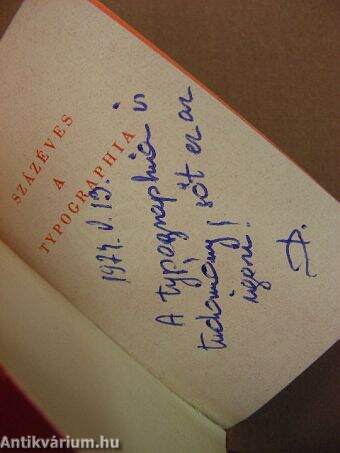 SZÁZÉVES
A
TYPOGRAPHIA
1974. V. 13.
A typographia is
tudomány, sőt ez az
igazi.
Antikvárium.hu